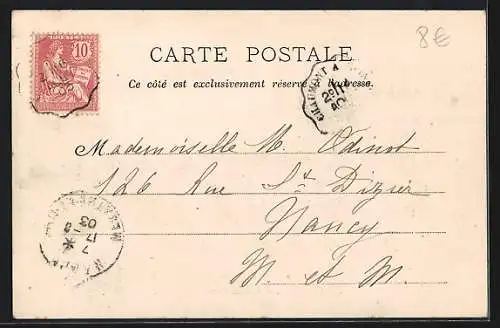 8€
10
CARTE POSTALE
Ce côté est exclusivement réservé à l'adresse.
CHAUMONT A
Mademoiselle M. Odinot
126 Rue St Dizier
Nancy
M. et M.
7
17
03